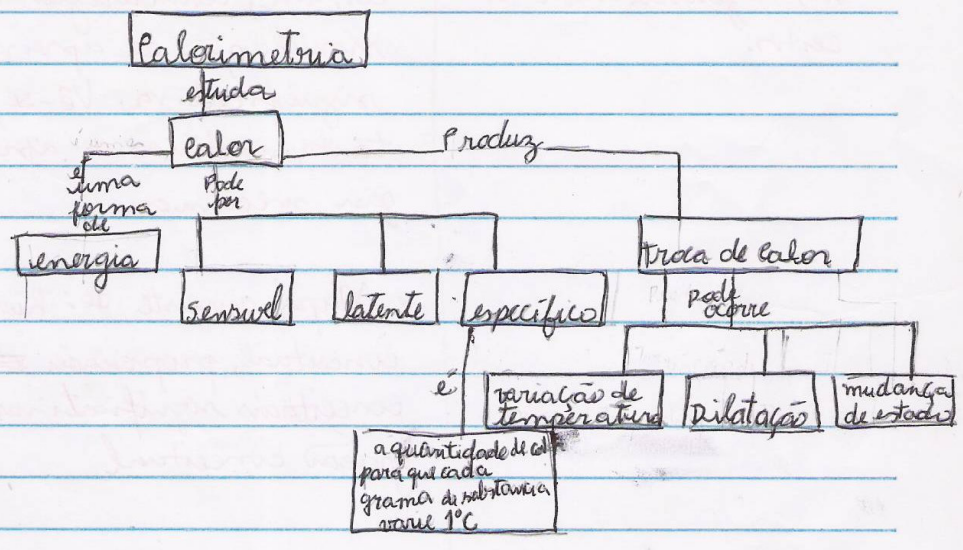 Calorimetria
estuda
Calor
Produz
é uma
forma
de
Pode
por
energia
troca de Calor
sensivel
latente
específico
pode
ocorre
é
variação de
temperatura
Dilatação
mudança
de estado
a quantidade de cal
para que cada
grama de substancia
varie 1°C